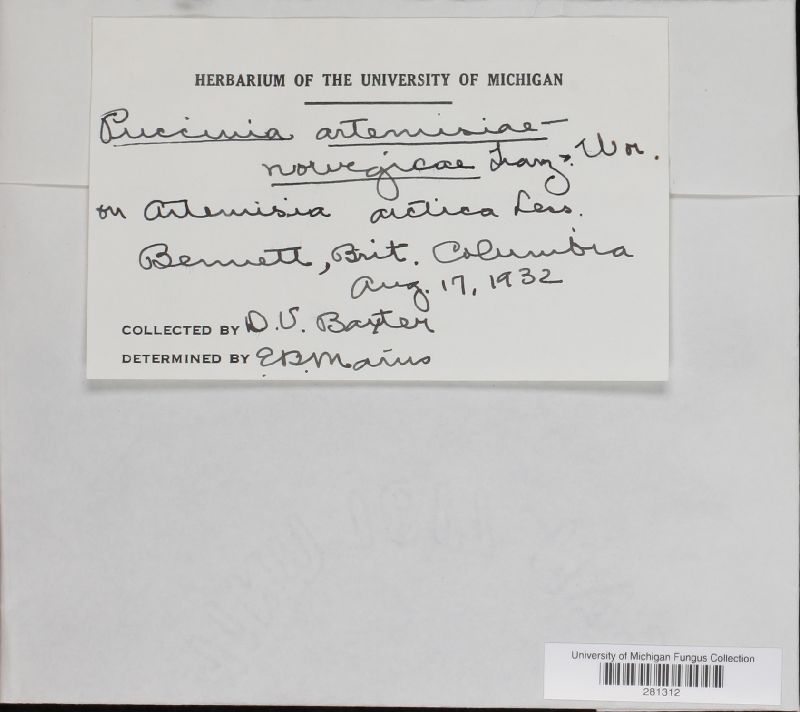 HERBARIUM OF THE UNIVERSITY OF MICHIGAN
Puccinia artemisiae-
norvegicae Tranz. & Wor.
on Artemisia arctica Less.
Bennett, Brit. Columbia
Aug. 17, 1932
COLLECTED BY D. V. Baxter
DETERMINED BY E.B. Mains
University of Michigan Fungus Collection
281312